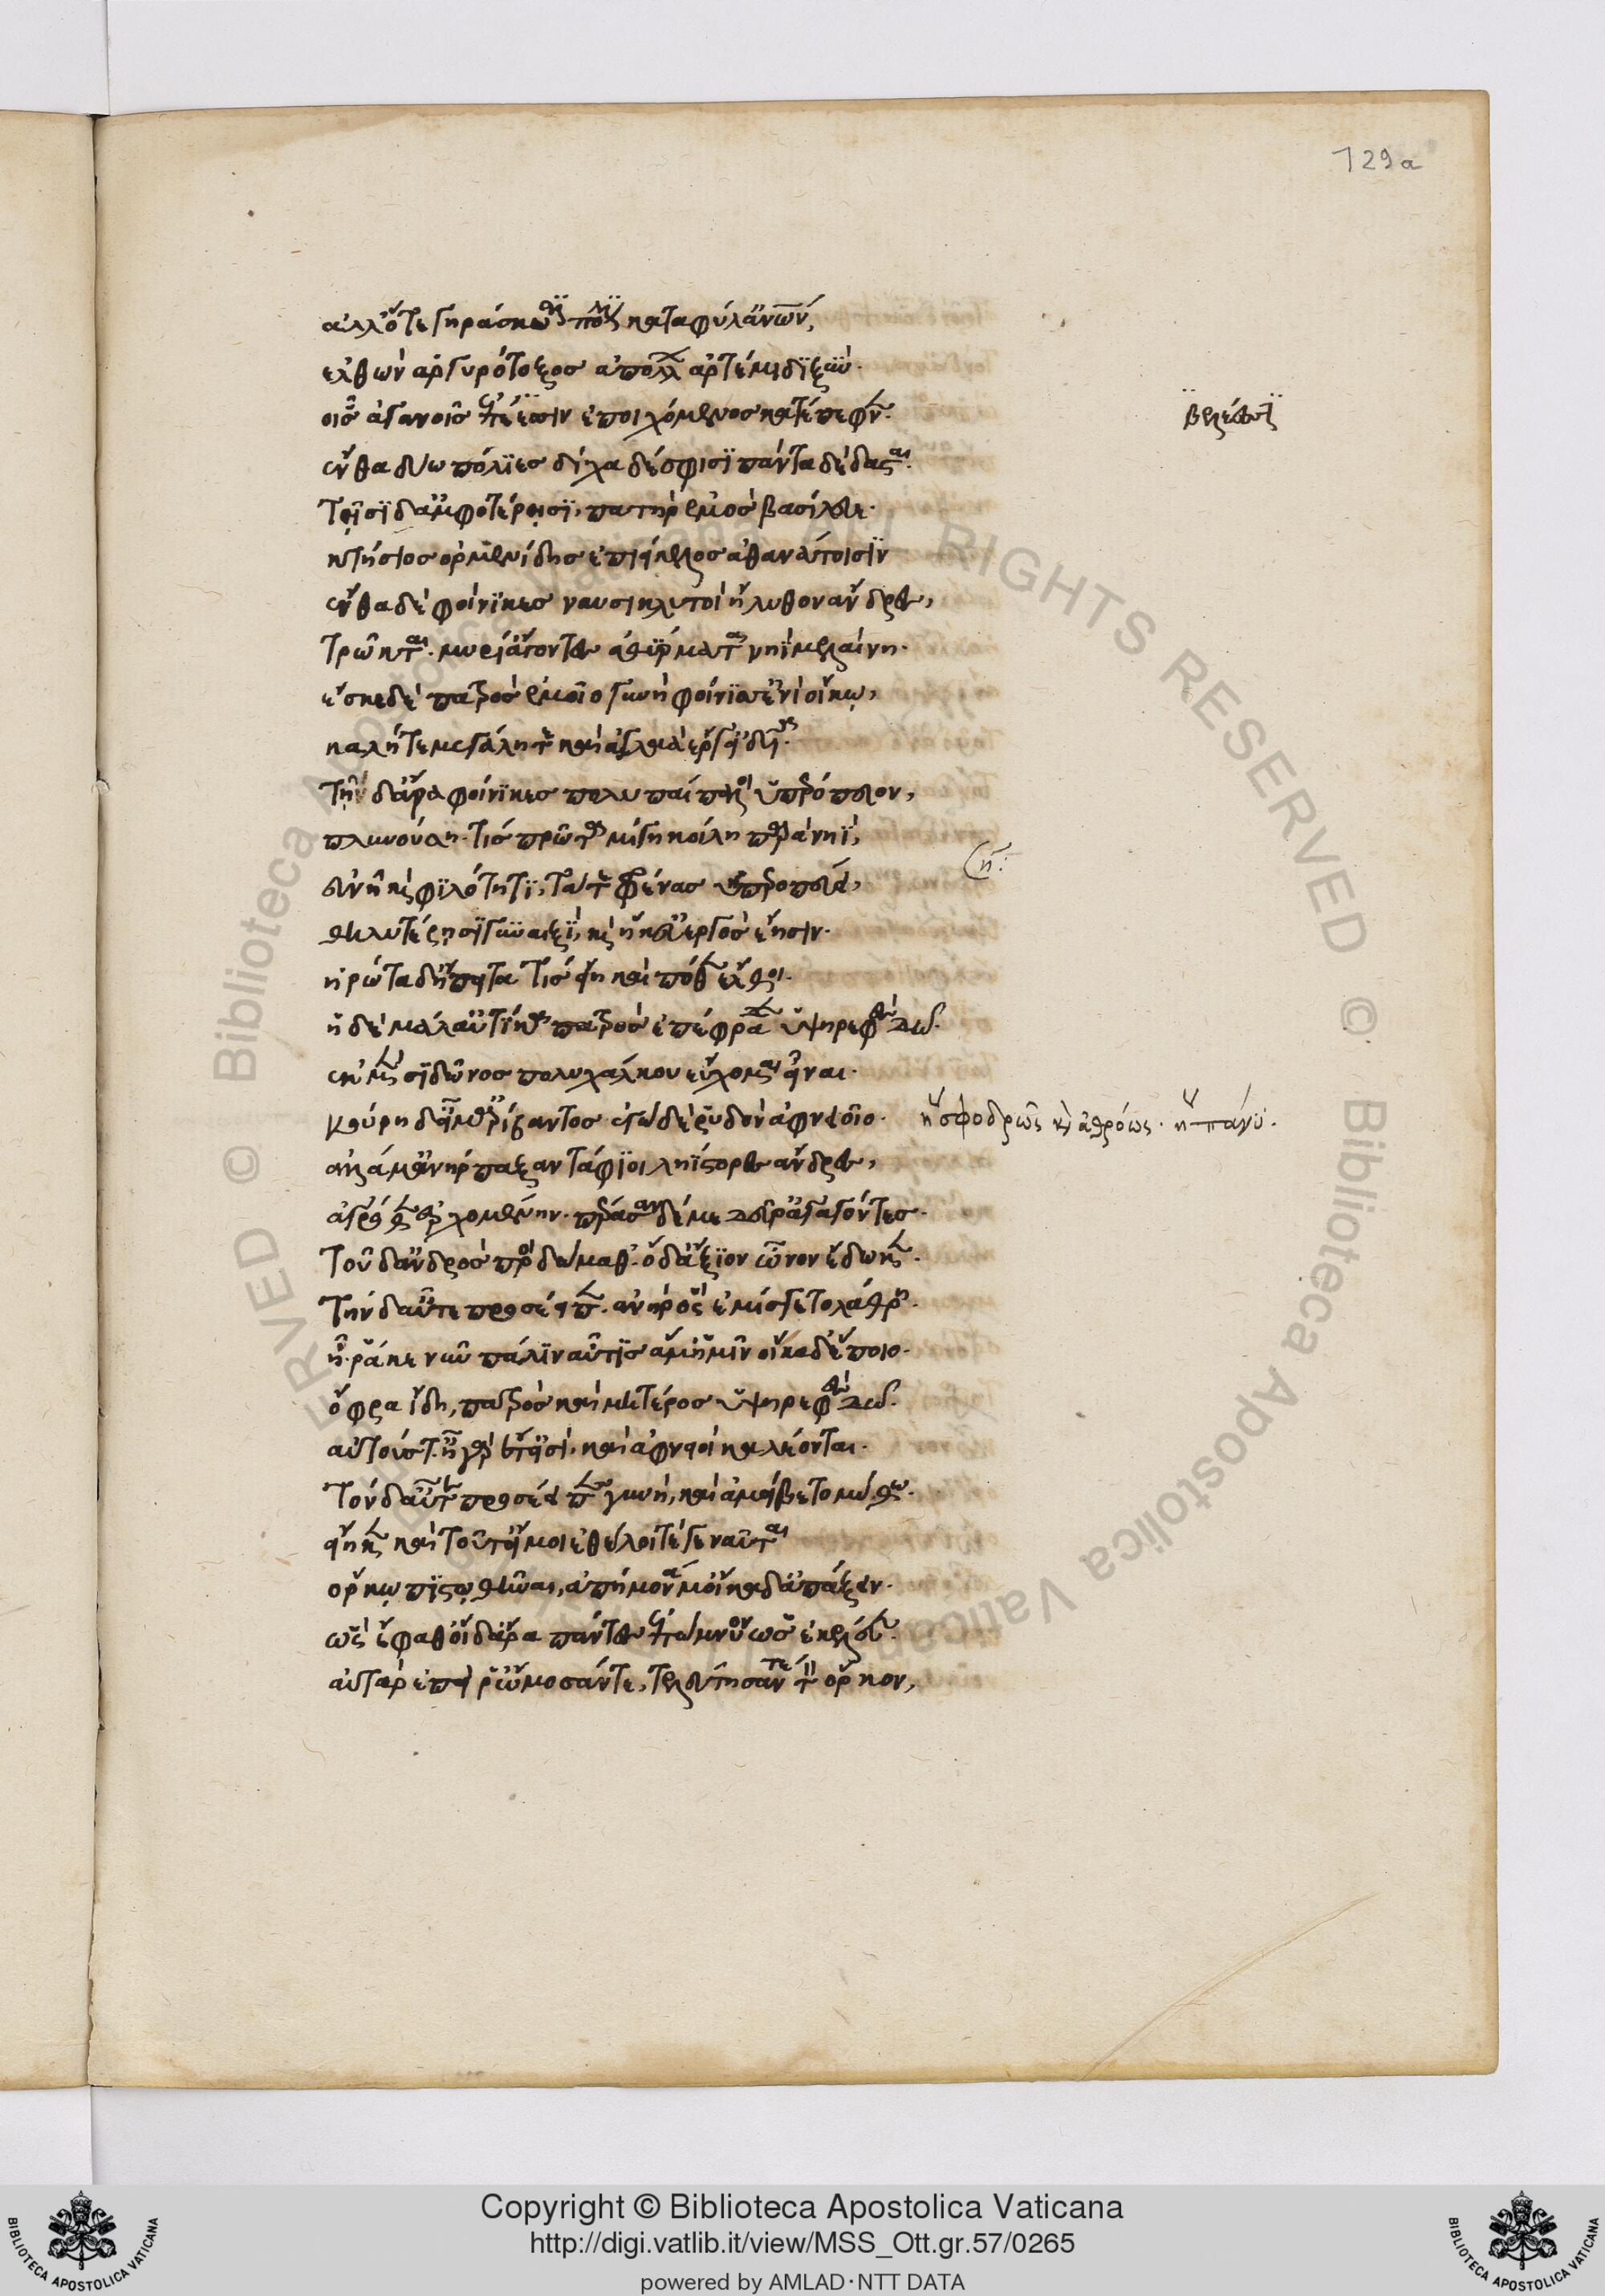 129a
ἀλλ' ὅτε γηράσκωσι πόλιν κατὰ φῦλ' ἀνθρώπων,
ἐλθὼν ἀργυρότοξος ἀπόλλων ἀρτέμιδι ξὺν.
οἷς ἀγανοῖς βελέεσσιν ἐποιχόμενος κατέπεφνεν. βελέεσσι
ἔνθα δύω πόλιες δίχα δέ σφισι πάντα δέδασται.
τῇσι δ' ἀμφοτέρῃσι, πατὴρ ἐμὸς βασίλευε.
κτήσιος ὀρμενίδης ἐπιείκελος ἀθανάτοισιν
ἔνθα δὲ φοίνικες ναυσικλυτοὶ ἤλυθον ἄνδρες,
τρῶκται. μυρί' ἄγοντες ἀθύρματα νηῒ μελαίνῃ.
ἔσκε δὲ πατρὸς ἐμοῖο γυνὴ φοίνισσ' ἐνὶ οἴκῳ,
καλή τε μεγάλη τε καὶ ἀγλαὰ ἔργ' εἰδυῖα.
τὴν δ' ἄρα φοίνικες πολυπαίπαλοι ὑπερόπευον,
πλυνούσῃ. τὶς πρῶτα μίγη κοίλῃ παρὰ νηῒ,
εὐνῇ καὶ φιλότητι, τά τε φρένας ὑπεροπεύει, (η:
θηλυτέρῃσι γυναιξὶ, καὶ ἥ κ' εὐεργὸς ἔησιν.
ἠρώτα δ' ἤπειτα τίς εἴη καὶ πόθεν ἔλθοι.
ἡ δὲ μάλ' αὐτίκα πατρὸς ἐπέφραδεν ὑψηρεφὲς δῶ.
ἐκ μὲν σιδῶνος πολυχάλκου εὔχομαι εἶναι.
κούρη δ' εἴμ' ἀρύβαντος ἐγὼ δὲ ῥυδὸν ἀφνειοῖο. ἢ σφοδρῶς καὶ ἀθρόως. ἢ πάνυ.
ἀλλά μ' ἀνήρπαξαν τάφιοι ληΐστορες ἄνδρες,
ἀγρόθεν ἐρχομένην. πέρασαν δέ με δεῦρ' ἀγαγόντες.
τοῦδ' ἀνδρὸς πρὸς δώμαθ'. ὁ δ' ἄξιον ὦνον ἔδωκεν.
τὴν δ' αὖτε προσέειπεν. ἀνὴρ ὃς ἐμίσγετο λάθρη.
ἦ ῥά κε νῦν πάλιν αὖτις ἅμ' ἡμῖν οἴκαδ' ἕποιο.
ὄφρα ἴδῃ, πατρὸς καὶ μητέρος ὑψηρεφὲς δῶ.
αὐτούς τ'. ἦ γὰρ ἔτ' εἰσὶ, καὶ ἀφνειοὶ καλέονται.
τὸν δ' αὖτε προσέειπε γυνὴ, καὶ ἀμείβετο μύθῳ.
εἴη κεν καὶ τοῦτ' εἴ μοι ἐθέλοιτέ γε ναῦται
ὅρκῳ πιστωθῆναι, ἀπήμονά μ' οἴκαδ' ἀπάξειν.
ὣς ἔφαθ' οἱ δ' ἄρα πάντες ἐπώμνυον ὡς ἐκέλευεν.
αὐτὰρ ἐπεί ῥ' ὤμοσάν τε, τελεύτησάν τε τὸν ὅρκον,
Copyright © Biblioteca Apostolica Vaticana
http://digi.vatlib.it/view/MSS_Ott.gr.57/0265
powered by AMLAD·NTT DATA